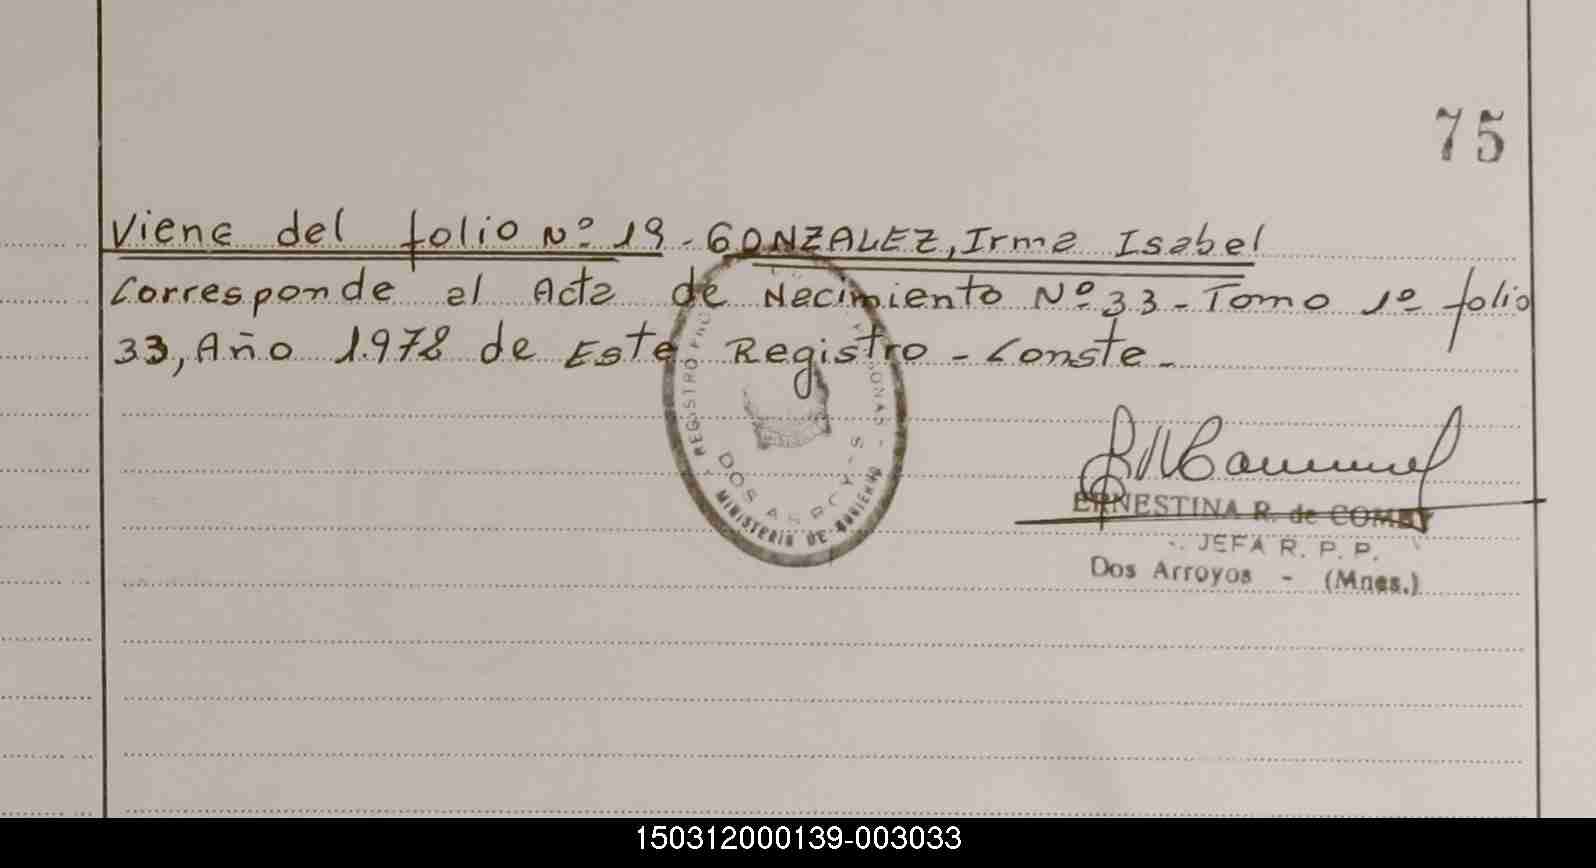 75
Viene del folio Nº 19 - GONZALEZ, Irma Isabel
Corresponde al Acta de Nacimiento Nº 33 - Tomo 1º folio
33, Año 1.978 de Este Registro - Conste -
REGISTRO
DOS ARROYOS
MINISTERIO DE GOBIERNO
ERNESTINA R. de
JEFA R. P. P.
Dos Arroyos - (Mnes.)
150312000139-003033